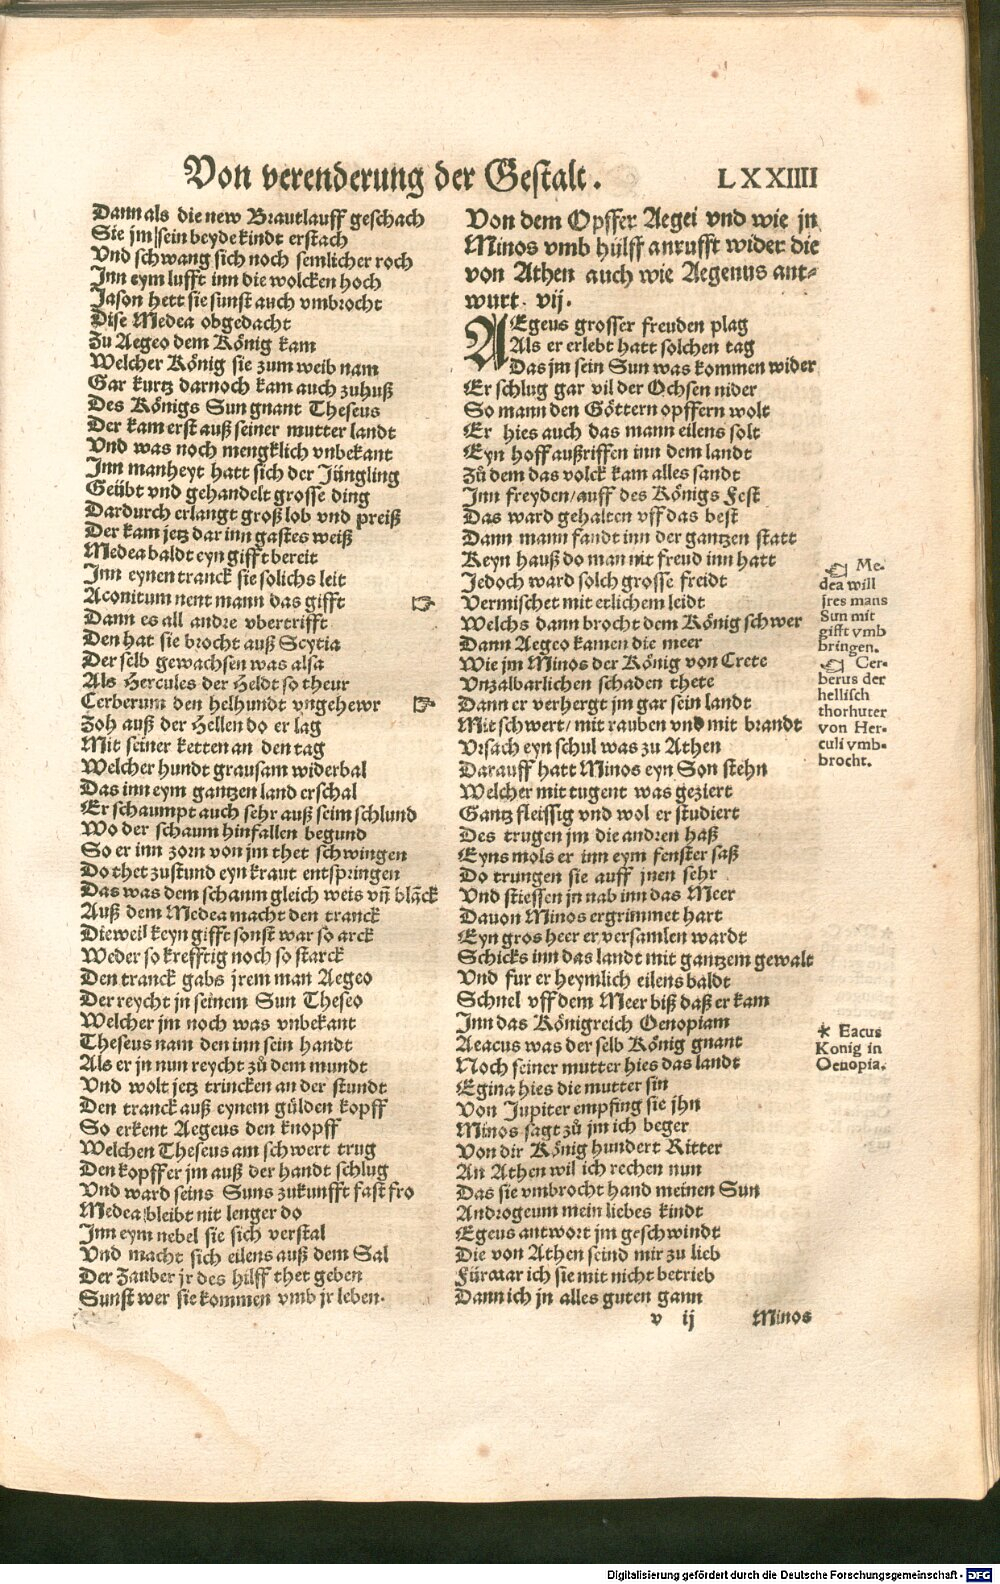 Von verenderung der Gestalt. LXXIIII
Dann als die new Brautlauff geschach
Sie jm sein beyde kindt erstach
Vnd schwang sich noch semlicher roch
Jnn eym lufft inn die wolcken hoch
Jason hett sie sunst auch vmbrocht
Dise Medea obgedacht
Zu Aegeo dem König kam
Welcher König sie zum weib nam
Gar kurtz darnoch kam auch zuhuß
Des Königs Sun gnant Theseus
Der kam erst auß seiner mutter landt
Vnd was noch mengklich vnbekant
Jnn manheyt hatt sich der Jüngling
Geübt vnd gehandelt grosse ding
Dardurch erlangt groß lob vnd preiß
Der kam jetz dar inn gastes weiß
Medea baldt eyn gifft bereit
Jnn eynen tranck sie solichs leit
Aconitum nent mann das gifft ☞
Dann es all andre vbertrifft
Den hat sie brocht auß Scytia
Der selb gewachsen was alsa
Als Hercules der Heldt so theur
Cerberum den helhundt vngehewr ☞
Zoh auß der Hellen do er lag
Mit seiner ketten an den tag
Welcher hundt grausam widerbal
Das inn eym gantzen land erschal
Er schaumpt auch sehr auß seim schlund
Wo der schaum hinfallen begund
So er inn zorn von jm thet schwingen
Do thet zustund eyn kraut entspringen
Das was dem schaum gleich weis vñ blãck
Auß dem Medea macht den tranck
Dieweil keyn gifft sonst war so arck
Weder so krefftig noch so starck
Den tranck gabs jrem man Aegeo
Der reycht jn seinem Sun Theseo
Welcher jm noch was vnbekant
Theseus nam den inn sein handt
Als er jn nun reycht zů dem mundt
Vnd wolt jetz trincken an der stundt
Den tranck auß eynem gülden kopff
So erkent Aegeus den knopff
Welchen Theseus am schwert trug
Den kopff er jm auß der handt schlug
Vnd ward seins Suns zukunfft fast fro
Medea bleibt nit lenger do
Jnn eym nebel sie sich verstal
Vnd macht sich eilens auß dem Sal
Der Zauber jr des hilff thet geben
Sunst wer sie kommen vmb jr leben.
Von dem Opffer Aegei vnd wie jn
Minos vmb hülff anrufft wider die
von Athen auch wie Aegenus ant-
wurt. vij.
AEgeus grosser freuden plag
Als er erlebt hatt solchen tag
Das jm sein Sun was kommen wider
Er schlug gar vil der Ochsen nider
So mann den Göttern opffern wolt
Er hies auch das mann eilens solt
Eyn hoff außriffen inn dem landt
Zů dem das volck kam alles sandt
Jnn freyden/auff des Königs Fest
Das ward gehalten vff das best
Dann mann fandt inn der gantzen statt
Keyn hauß do man nit freud inn hatt
Jedoch ward solch grosse freidt
Vermischet mit etlichem leidt
Welchs dann brocht dem König schwer
Dann Aegeo kamen die meer
Wie jm Minos der König von Crete
Vnzalbarlichen schaden thete
Dann er verhergt jm gar sein landt
Mit schwert/mit rauben vnd mit brandt
Vrsach eyn schul was zu Athen
Darauff hatt Minos eyn Son stehn
Welcher mit tugent was geziert
Gantz fleissig vnd wol er studiert
Des trugen jm die andren haß
Eyns mols er inn eym fenster saß
Do trungen sie auff jnen sehr
Vnd stiessen jn nab inn das Meer
Dauon Minos ergrimmet hart
Eyn gros heer er versamlen wardt
Schicks inn das landt mit gantzem gewalt
Vnd fur er heymlich eilens baldt
Schnel vff dem Meer biß daß er kam
Jnn das Königreich Oenopiam
Aeacus was der selb König gnant
Noch seiner mutter hies das landt
Egina hies die mutter sin
Von Jupiter empfing sie jhn
Minos sagt zů jm ich beger
Von dir König hundert Ritter
An Athen wil ich rechen nun
Das sie vmbrocht hand meinen Sun
Androgeum mein liebes kindt
Egeus antwort jm geschwindt
Die von Athen seind mir zu lieb
Fürwar ich sie mit nicht betrieb
Dann ich jn alles guten gann
v ij Minos
☜ Me-
dea will
jres mans
Sun mit
gifft vmb
bringen.
☜ Cer-
berus der
hellisch
thorhuter
von Her-
culi vmb-
brocht.
* Eacus
Konig in
Oenopia.
Digitalisierung gefördert durch die Deutsche Forschungsgemeinschaft - DFG